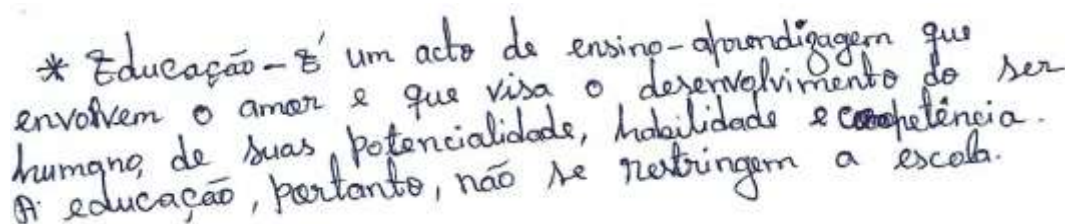 * Educação - É um acto de ensino-aprendizagem que
envolvem o amor e que visa o desenvolvimento do ser
humano, de suas potencialidade, habilidade e competência.
A educação, portanto, não se restringem a escola.